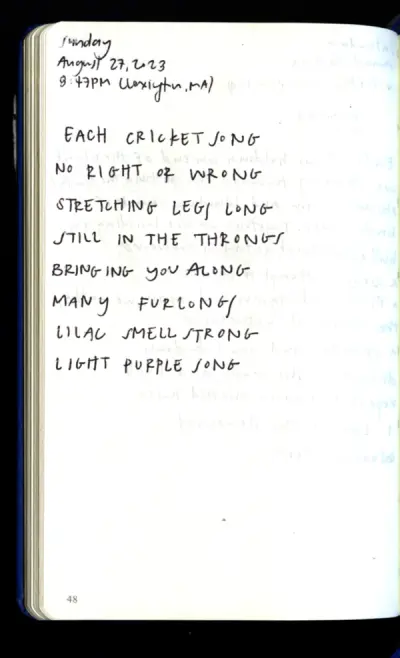 Sunday
August 27, 2023
9:47PM (Lexington, MA)
EACH CRICKET SONG
NO RIGHT OR WRONG
STRETCHING LEGS LONG
STILL IN THE THRONGS
BRINGING YOU ALONG
MANY FURLONGS
LILAC SMELL STRONG
LIGHT PURPLE SONG
48